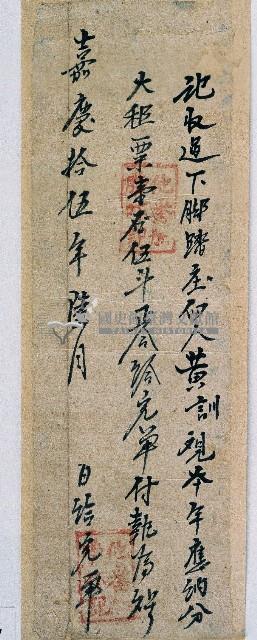 記收過下腳踏庄佃人黃訓觀本年應納分
大租票壹石伍斗正合給完單付執為炤
嘉慶拾伍年陸月 日給完單
國史館臺灣文獻館
TAIWAN HISTORICA